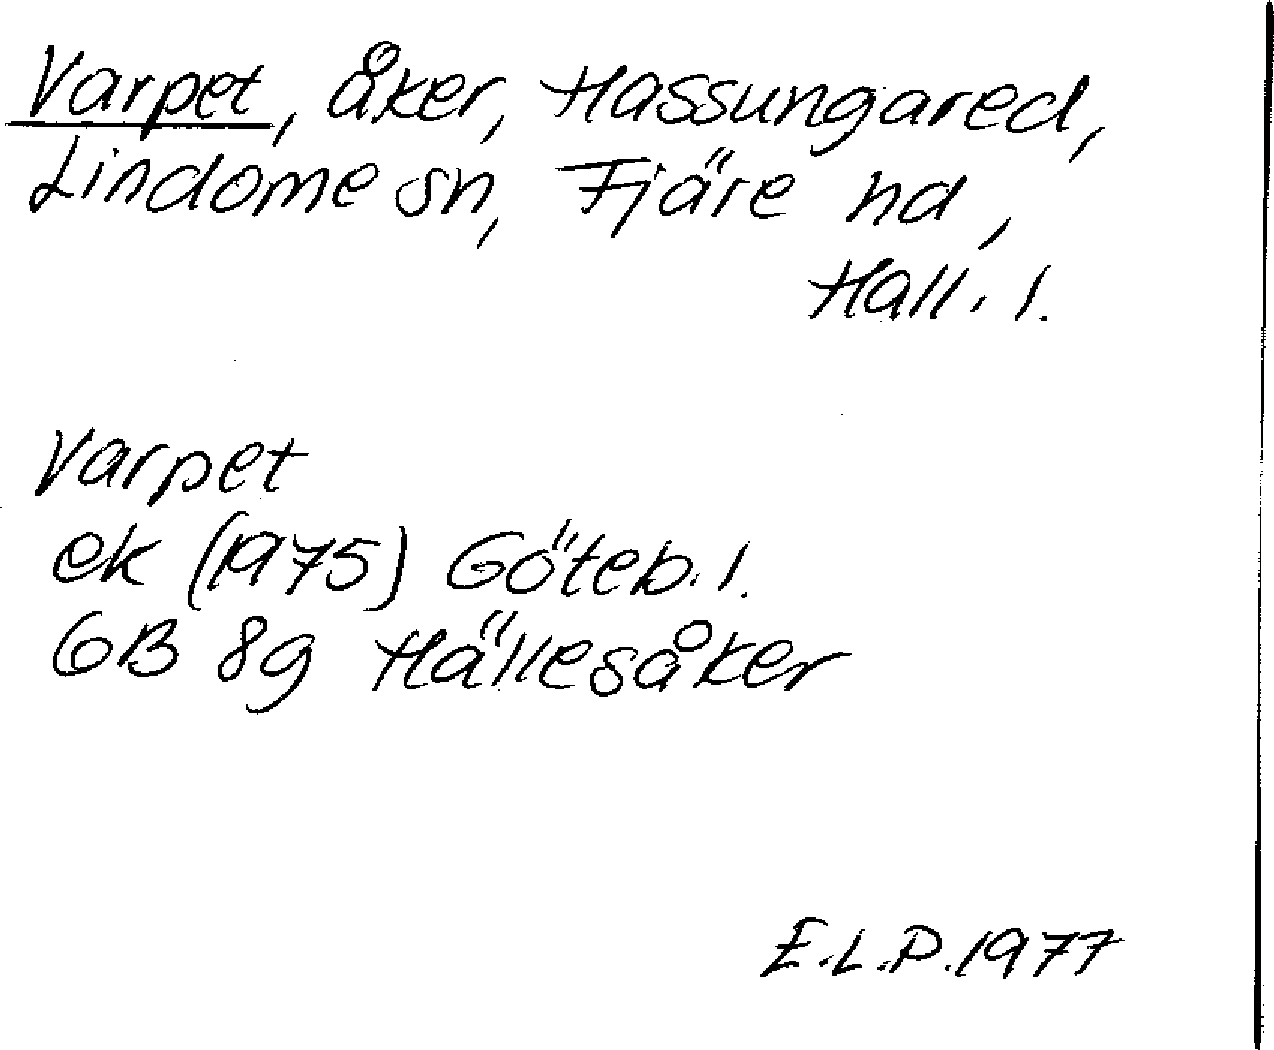 Varpet, åker, Hassungared,
Lindome sn, Fjäre hd,
Hall. l.
Varpet
ek (1975) Göteb. l.
6B 8g Hällesåker
E.L.P. 1977